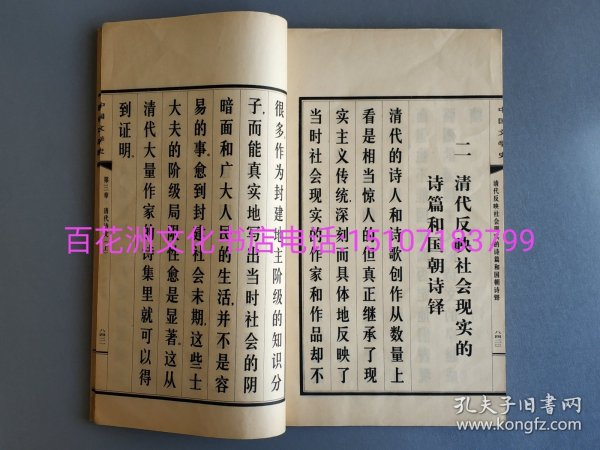 中国文学史
清代反映社会现实的诗篇和国朝诗铎
二 清代反映社会现实的
诗篇和国朝诗铎
清代的诗人和诗歌创作从数量上
看是相当惊人的,但真正继承了现
实主义传统,深刻而具体地反映了
当时社会现实的作家和作品却不
很多作为封建地主阶级的知识分
子,而能真实地出当时社会的阴
暗面和广大人的生活,并不是容
易的事,愈到封社会末期,这些士
大夫的阶级局限性愈是显著,这从
清代大量作家的诗集里就可以得
到证明。
中国文学史
第三章 清代
八四二
百花洲文化书店电话:15107183799
孔夫子旧书网
www.kongfz.com